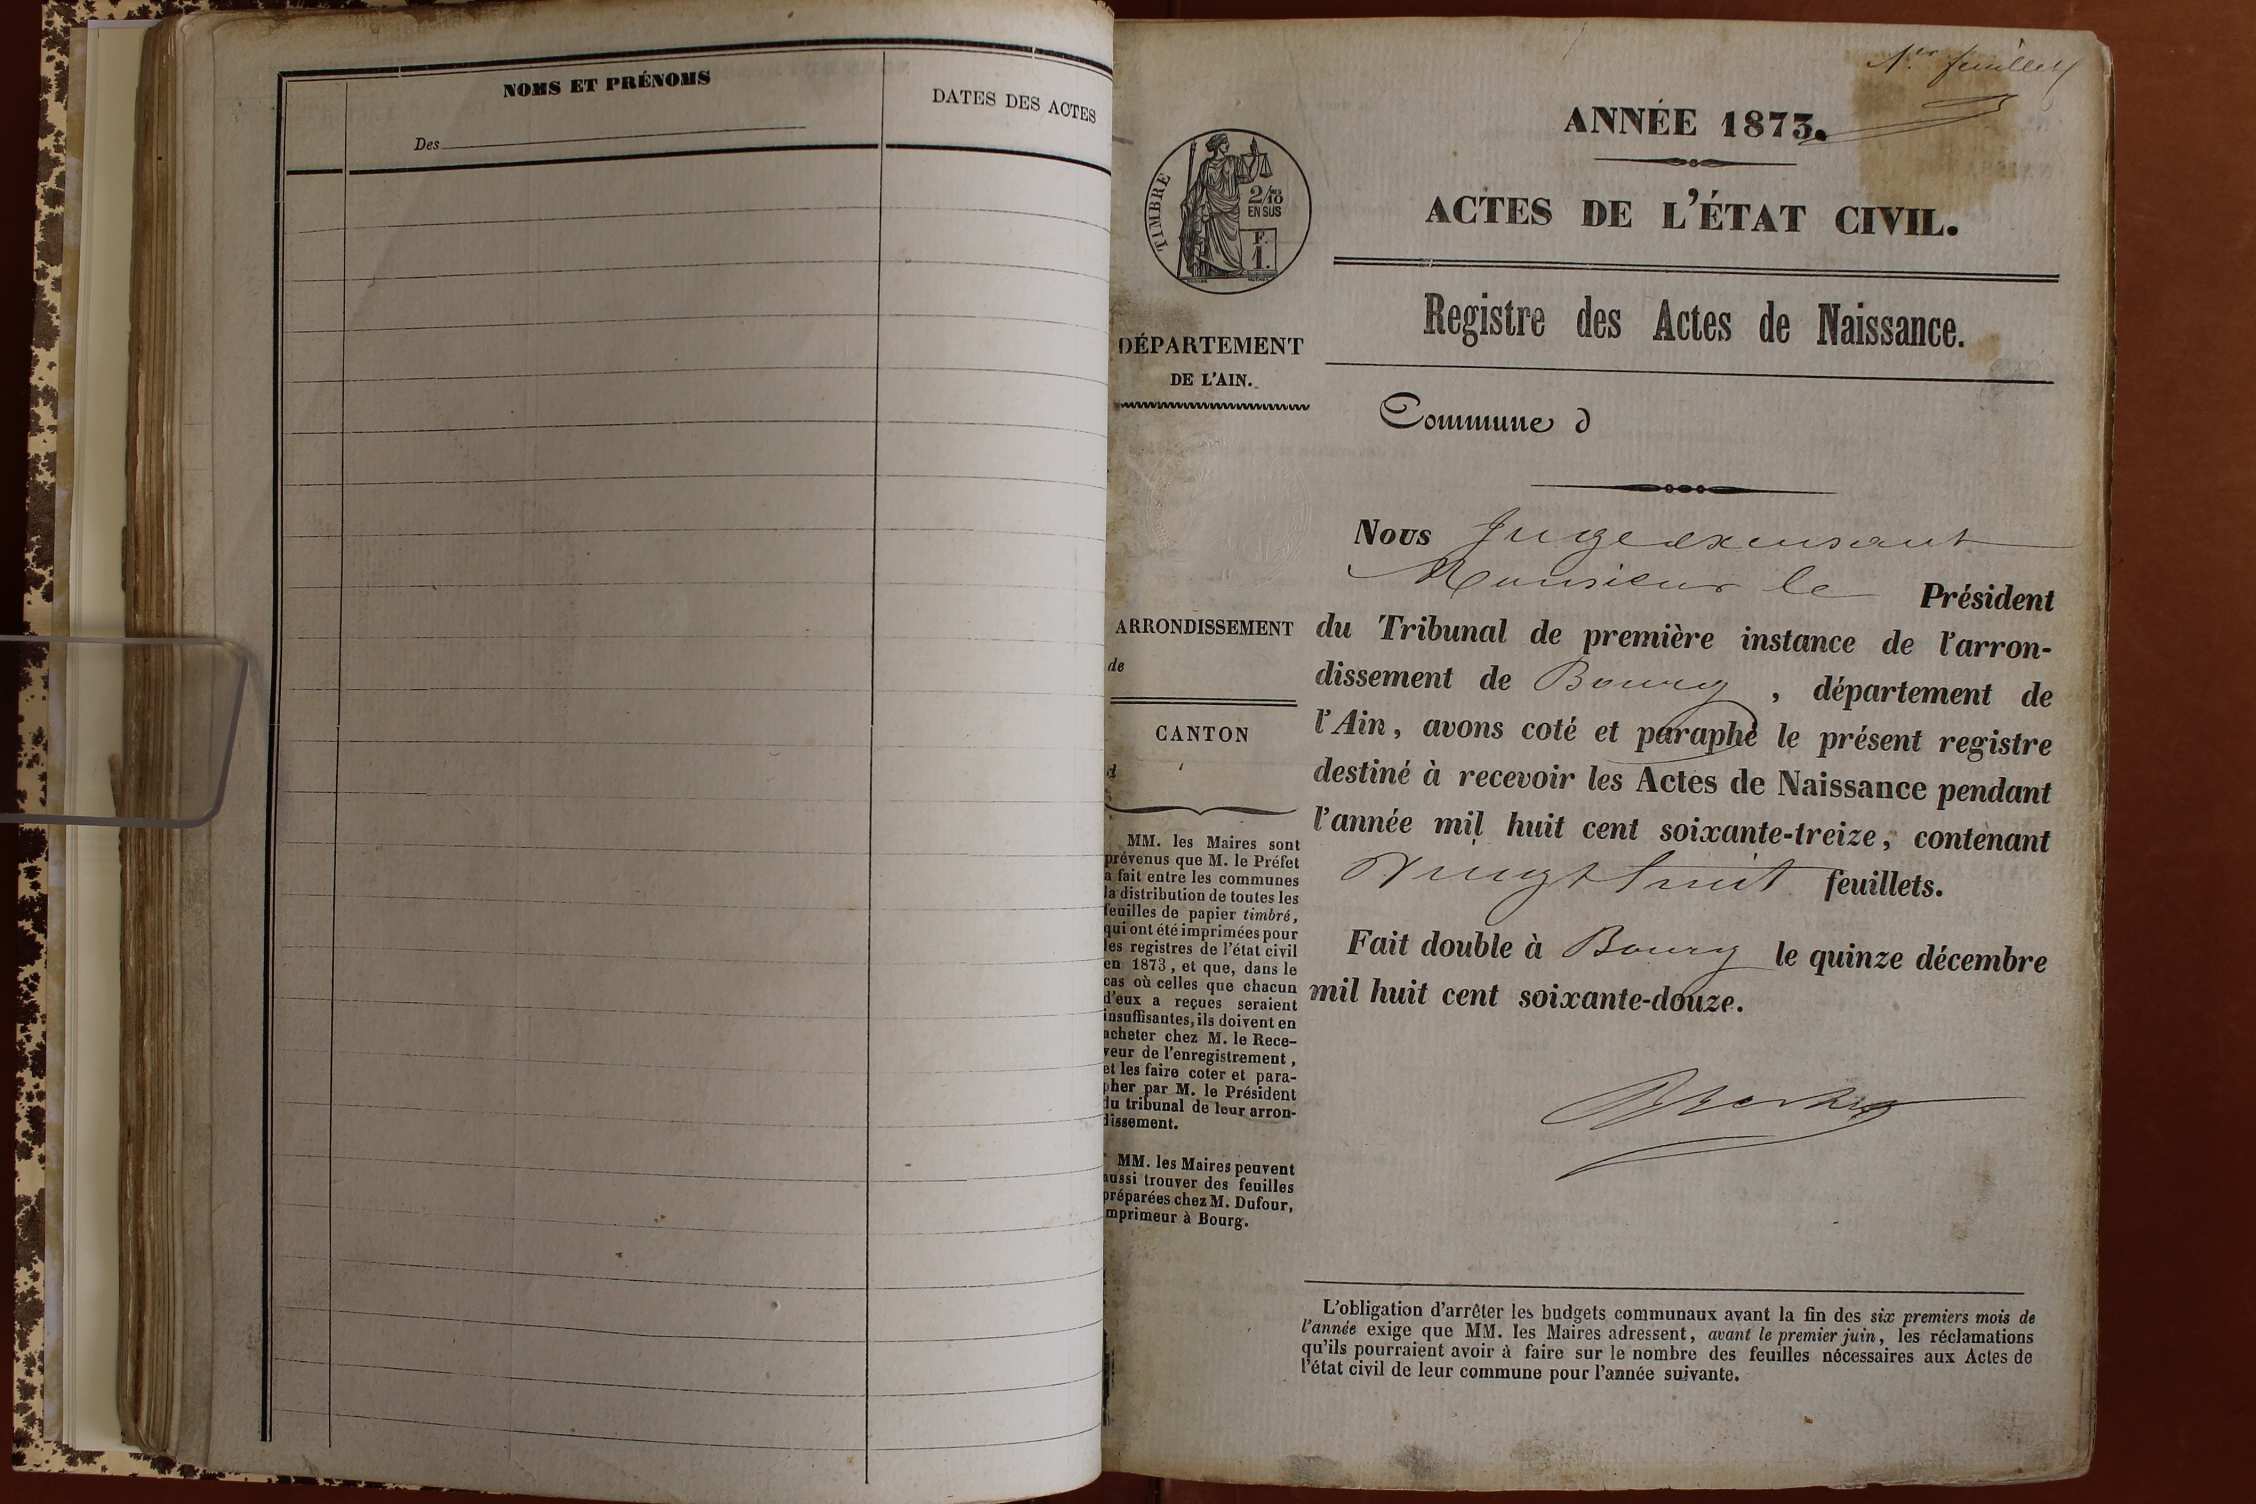 NOMS ET PRÉNOMS
Des
DATES DES ACTES
1er feuillet
ANNÉE 1873.
ACTES DE L'ÉTAT CIVIL.
TIMBRE
2/10
EN SUS
F.
1.
DÉPARTEMENT
DE L'AIN.
ARRONDISSEMENT
de
CANTON
d
MM. les Maires sont
prévenus que M. le Préfet
a fait entre les communes
la distribution de toutes les
feuilles de papier timbré,
qui ont été imprimées pour
les registres de l'état civil
en 1873, et que, dans le
cas où celles que chacun
d'eux a reçues seraient
insuffisantes, ils doivent en
acheter chez M. le Rece-
veur de l'enregistrement,
et les faire coter et para-
pher par M. le Président
du tribunal de leur arron-
dissement.
MM. les Maires peuvent
aussi trouver des feuilles
préparées chez M. Dufour,
imprimeur à Bourg.
Registre des Actes de Naissance.
Commune d
Nous Juge excusant
Monsieur le Président
du Tribunal de première instance de l'arron-
dissement de Bourg, département de
l'Ain, avons coté et paraphé le présent registre
destiné à recevoir les Actes de Naissance pendant
l'année mil huit cent soixante-treize, contenant
Vingt huit feuillets.
Fait double à Bourg le quinze décembre
mil huit cent soixante-douze.
L'obligation d'arrêter les budgets communaux avant la fin des six premiers mois de
l'année exige que MM. les Maires adressent, avant le premier juin, les réclamations
qu'ils pourraient avoir à faire sur le nombre des feuilles nécessaires aux Actes de
l'état civil de leur commune pour l'année suivante.